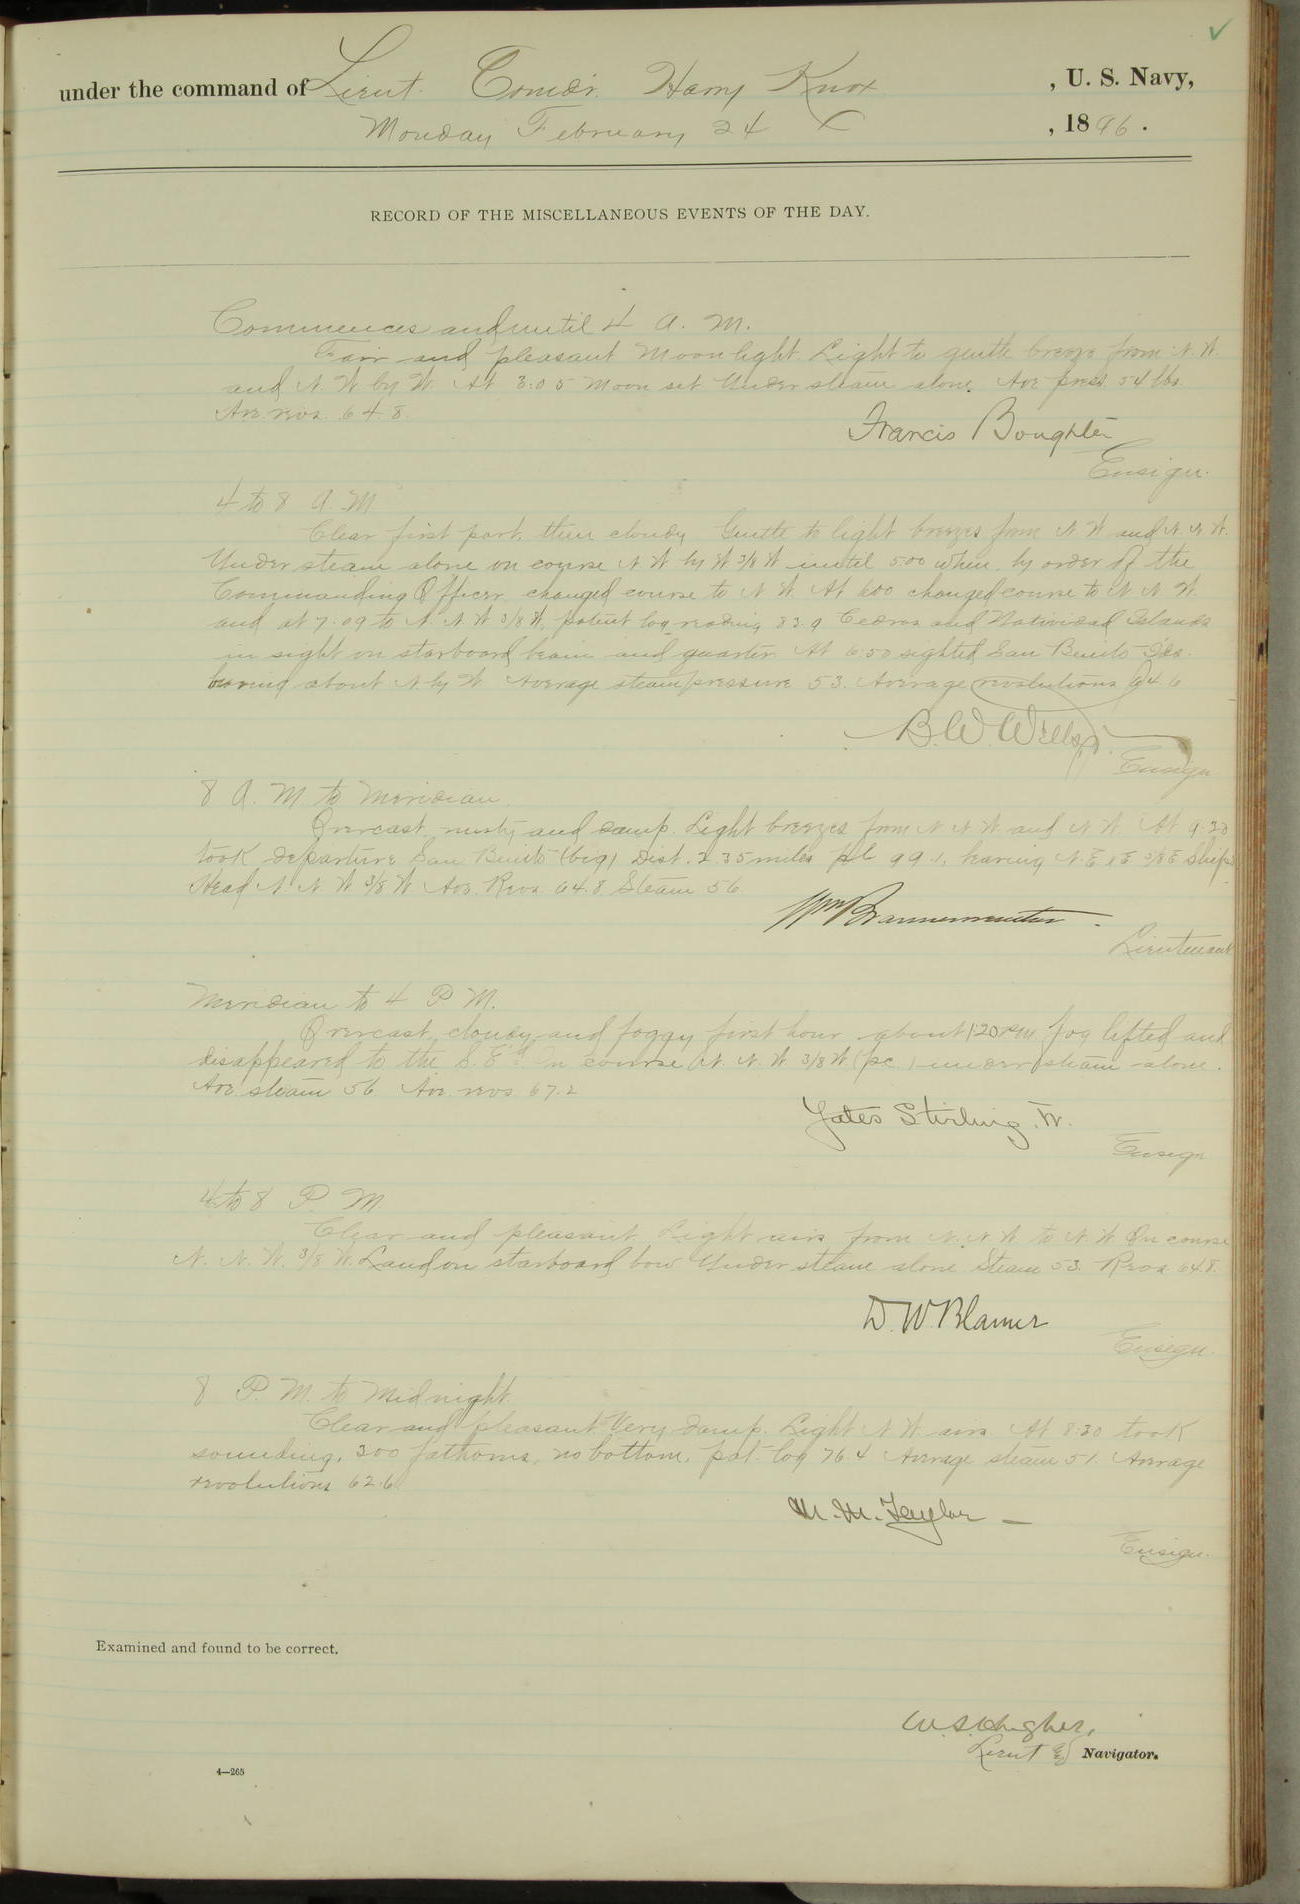 under the command of Lieut. Comdr. Harry Knox, U. S. Navy,
Monday February 24, 1896.
RECORD OF THE MISCELLANEOUS EVENTS OF THE DAY.
Commences and until 4 A. M.
Fair and pleasant Moonlight. Light to gentle breeze from N. W.
and N. W. by W. At 3:05 Moon set Under steam alone. Ave press 54 lbs
Ave. revs. 64.8.
Francis Boughter
Ensign.
4 to 8 A. M
Clear first part, then cloudy Gentle to light breezes from N W and N. N. W.
Under steam alone on course N W by W 3/8 W until 5:00 when by order of the
Commanding Officer changed course to N W. At 6:00 changed course to N N W.
and at 7:09 to N N W 3/8 W, patent log reading 83.9 Cedros and Natividad Islands
in sight on starboard beam and quarter. At 6:50 sighted San Benito Ids.
bearing about N by W Average steam pressure 53. Average revolutions 64.6
B. W. Wells Jr.
Ensign
8 A. M to Meridian.
Overcast, misty and damp. Light breezes from N N W and N W. At 9:30
took departure San Benito (big) Dist. 2.35 miles pl 99.1, bearing N.E x E 3/8 E Ships
Head N N W 3/8 W Ave. Revs. 64.8 Steam 56
Wm Braunersreuther.
Lieutenant
Meridian to 4 P M.
Overcast, cloudy and foggy first hour about 1:20 P.M. fog lifted and
disappeared to the S. E'd. On course N. N. W. 3/8 W (pc) under steam alone.
Ave steam 56 Ave. revs. 67.2
Yates Stirling, Jr.
Ensign
4 to 8 P. M.
Clear and pleasant Light airs from N. N W to N W On course
N. N. W. 3/8 W. Land on starboard bow Under steam alone Steam 53. Revs. 64.8.
D. W. Blamer
Ensign.
8 P. M. to Midnight.
Clear and pleasant Very damp. Light N W airs At 8:30 took
sounding, 300 fathoms, no bottom, pat. log 76.4 Average steam 51. Average
revolutions 62.6
M. M. Taylor
Ensign.
Examined and found to be correct.
W. S. Hughes,
Lieut & Navigator.
4—265